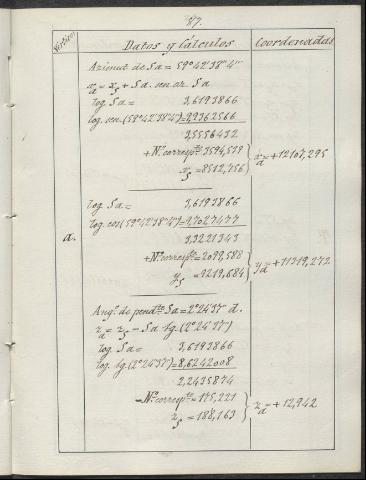 87.
Vértices
Datos y Cálculos
Coordenadas
a.
Azimut de Sa = 59°42'38"4'''
x_a = x_s + Sa. sen az. Sa
log. Sa = 3,6193866
log. sen (59°42'38"4) = 9,9362566
3,5556432
+ N.º correspte = 3594,538
x_s = 8512,756
x_a = +12107,295
log. Sa = 3,6193866
log. cos (59°42'38"4) = 9,7027477
3,3221343
+ N.º correspte = 2099,588
y_s = 9219,684
y_a = +11319,272
Ang.º de pendte Sa = 2°24'37" d.
z_a = z_s - Sa tg. (2°24'37")
log. Sa = 3,6193866
log. tg. (2°24'37") = 8,6242008
2,2435874
- N.º correspte = 175,221
z_s = 188,163
z_a = +12,942